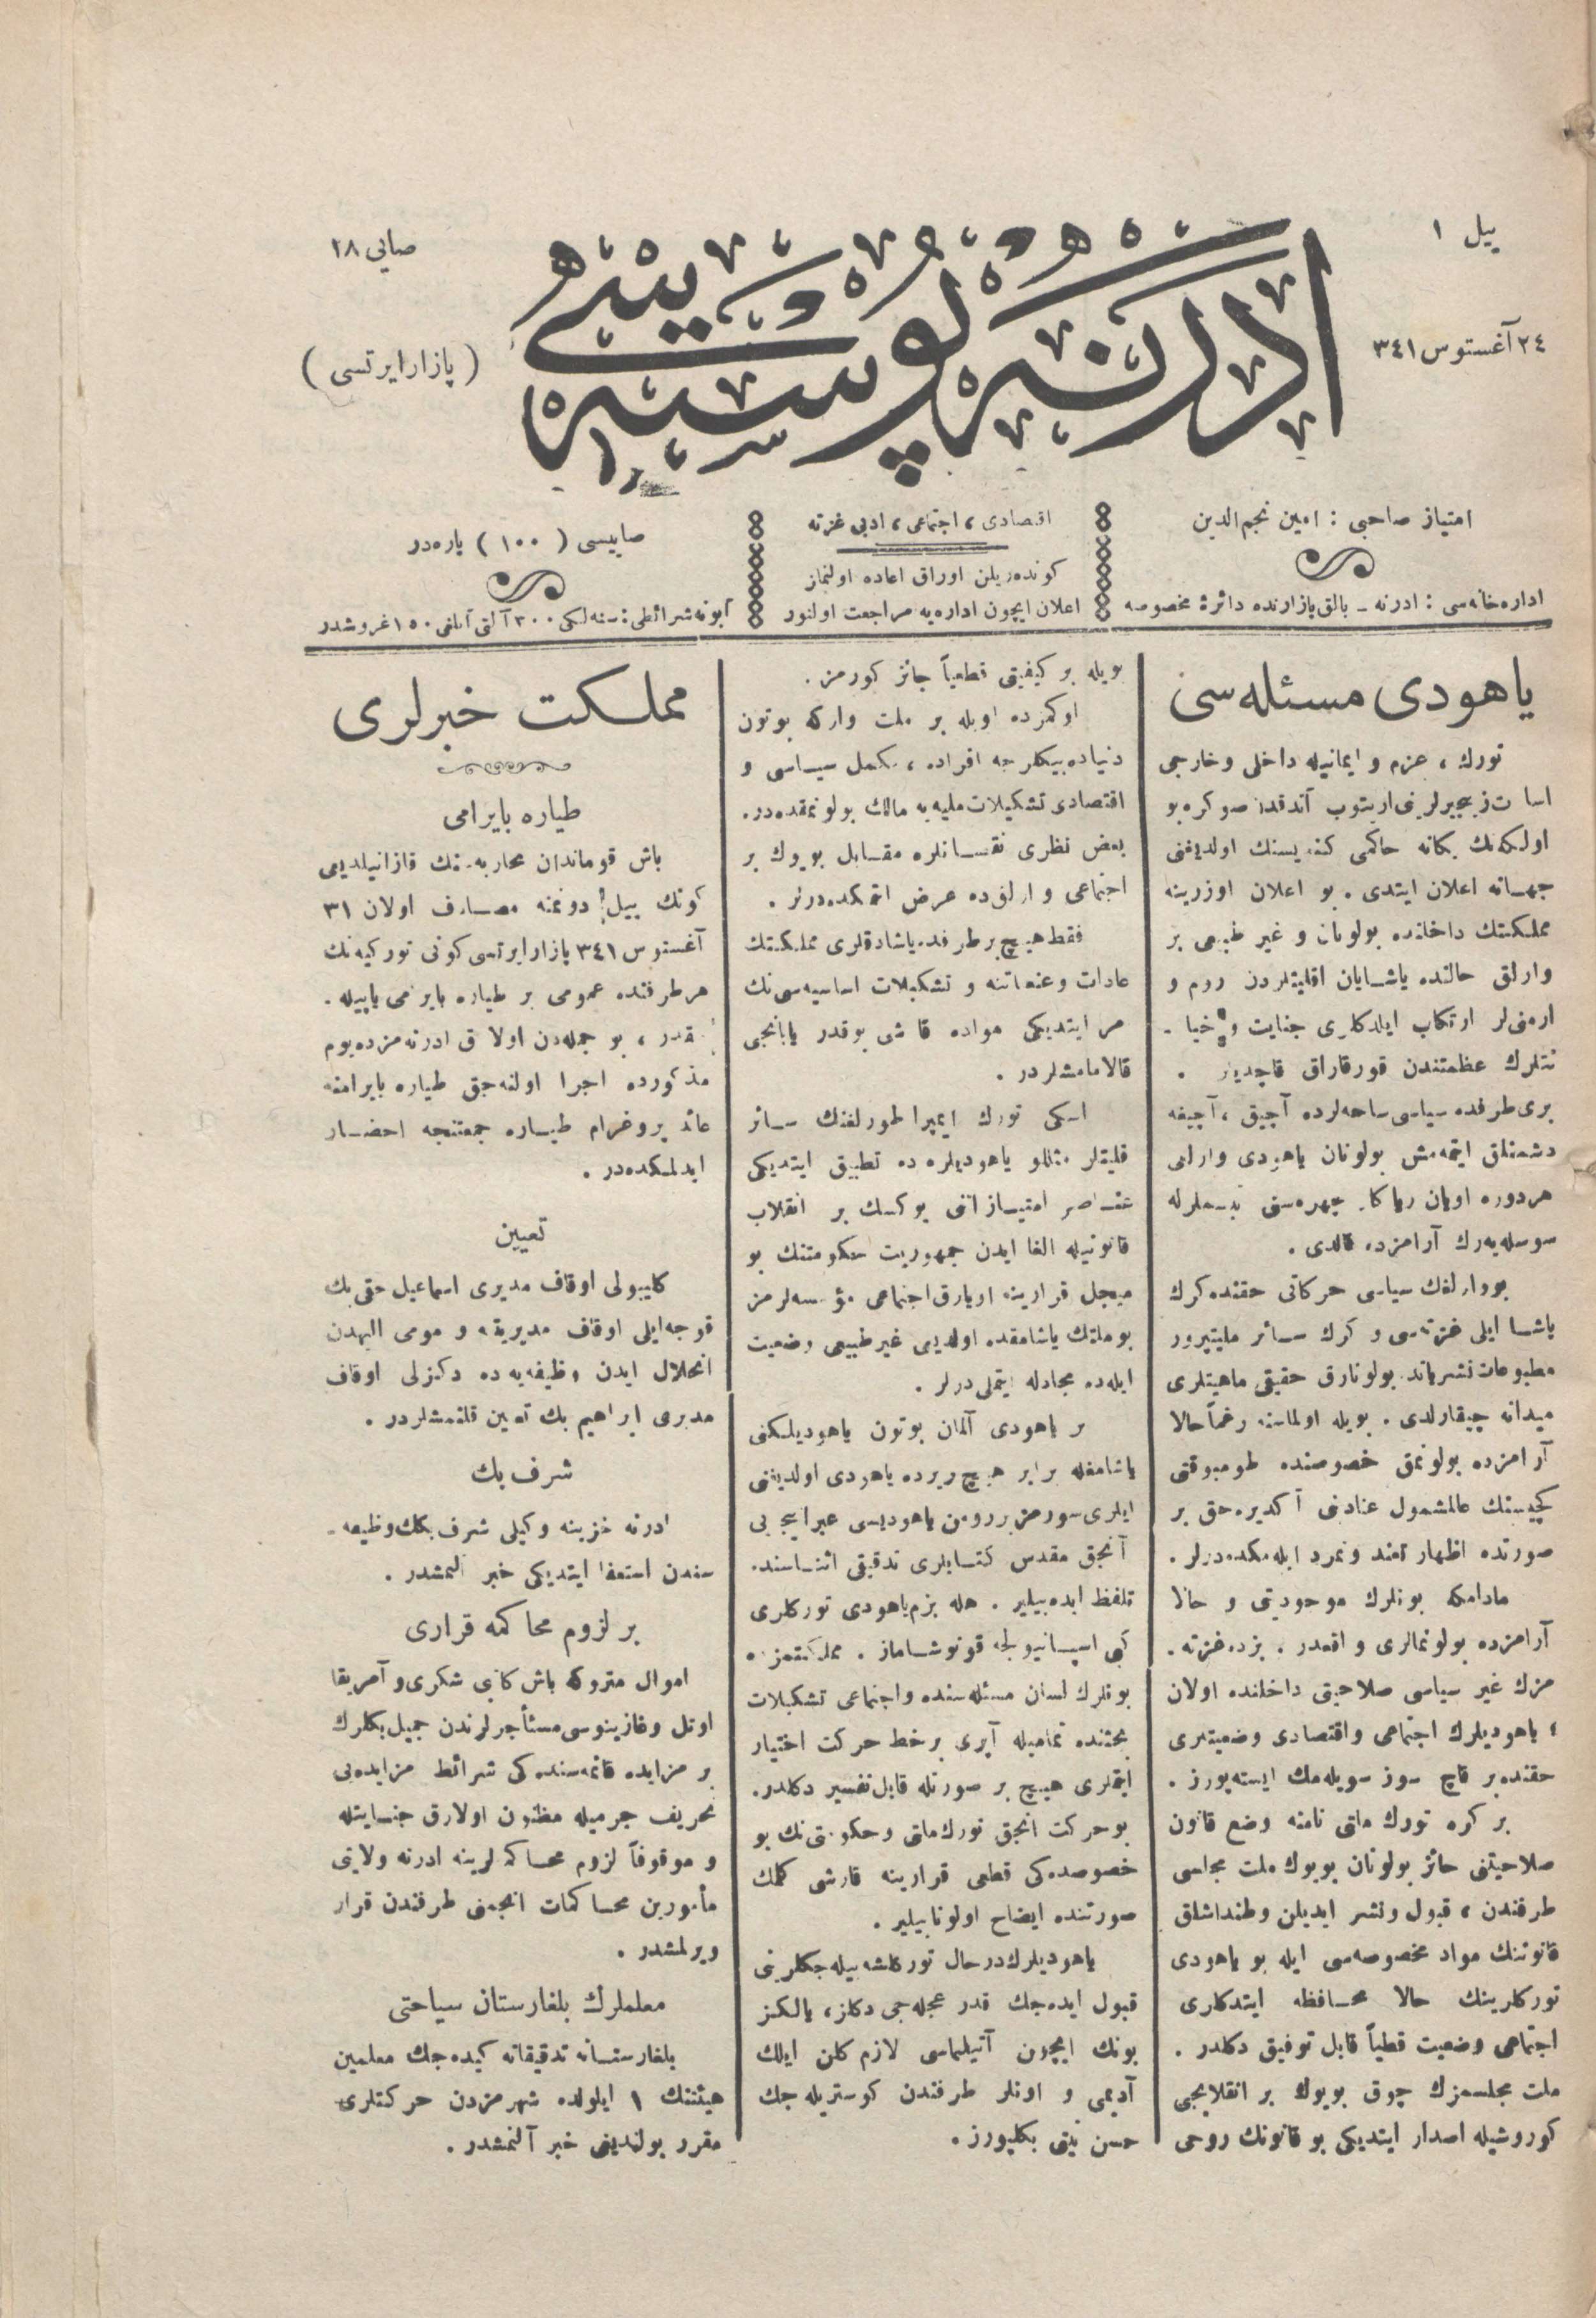 ييل ١
صايی ٢٨
ادرنه پوسته سی
٢٤ آغستوس ٣٤١
( پازار ايرتسی )
امتياز صاحبی : امين نجم الدين
اداره خانه سی : ادرنه ـ بالق پازارنده دائرۀ مخصوصه
اقتصادی ، اجتماعی ، ادبی غزته
كوندەريلن اوراق اعاده اولنماز
اعلان ايچون اداره يه مراجعت اولنور
صاييسی ( ١٠٠ ) پاره در
آبونه شرائطی : سنه لكی ٣٠٠ آلتی آيلغی ١٥٠ غروشدر
ياهودی مسئله سی
تورك ، عزم و ايمانيله داخلی و خارجی
زنجيرلرينی اريتوب آندقدن صوكره بو
اولكه نك يكانه حاكمی كنديسنك اولديغنی
جهانه اعلان ايتدی . بو اعلان اوزرينه
مملكتك داخلنده بولونان و غير طبيعی بر
وارلق حالنده ياشايان اقليتلردن روم و
ارمنی لر ارتكاب ايلدكلری جنايت و خيا ـ
نتلرك عظمتندن قورقاراق قاچديلر .
بری طرفده سياسی ساحه لرده آچيق ، آچيغه
دشمنلق ايتمه مش بولونان ياهودی وارلغی
هر دوره اويان رياكار چهره سنی تبسملرله
سوسله يه رك آرامزده قالدی .
بو وارلغك سياسی حركاتی حقنده كرك
پاشا ايلی غزته سی و كرك سائر مليتپرور
مطبوعات نشرياتده بولونارق حقيقی ماهيتلری
ميدانه چيقارلدی . بويله اولماسنه رغماً حالا
آرامزده بولونمق خصوصنده طومبوقتی
كچيسنك عالمشمول عنادنی آكديره جق بر
صورتده اظهار تعند و تمرد ايله مكده درلر .
مادامكه بونلرك موجوديتی و حالا
آرامزده بولونمالری واقعدر . بزده غزته ـ
مزك غير سياسی صلاحيتی داخلنده اولان
، ياهوديلرك اجتماعی و اقتصادی وضعيتلری
حقنده بر قاچ سوز سويله مك ايسته يورز .
بر كره تورك ملتی نامنه وضع قانون
صلاحيتنی حائز بولونان بويوك ملت مجلسی
طرفندن ، قبول و نشر ايديلن وطنداشلق
قانوننك مواد مخصوصه سی ايله بو ياهودی
توركلرينك حالا محافظه ايتدكلری
اجتماعی وضعيت قطعياً قابل توفيق دكلدر .
ملت مجلسمزك چوق بويوك بر انقلابجی
كوروشيله اصدار ايتديكی بو قانونك روحی
بويله بر كيفيتی قطعياً جائز كورمز .
اوكمزده اويله بر ملت واركه بوتون
دنياده بيكلرجه افراده ، مكمل سياسی و
اقتصادی تشكيلات مليه يه مالك بولونمقده در .
بعض نظری نقصانلره مقابل بويوك بر
اجتماعی وارلق ده عرض اتمكده درلر .
فقط هيچ بر طرفده ياشادقلری مملكتك
عادات و عنعناتنه و تشكيلات اساسيه سی نك
امر ايتديكی مواده قارشی بوقدر يابانجی
قالمامشلردر .
اسكی تورك ايمپراطورلغنك سائر
قليتلر مثللو ياهوديلره ده تطبيق ايتديكی
عناصر امتيازاتنی يوكسك بر انقلاب
قانونيله الغا ايدن جمهوريت حكومتنك بو
مبجل قرارينه اويارق اجتماعی مؤسسه لرمز
بوملتك ياشامقده اولديغی غير طبيعی وضعيت
ايله ده مجادله ايتملی درلر .
بر ياهودی آلمان بوتون ياهوديلكنی
ياشامغله برابر هيچ ريرده ياهودی اولديغنی
ايلری سورمز بر رومن ياهوديسی عبرانيجه يی
آنجق مقدس كتابلری تدقيقی اثناسنده
تلفظ ايده بيلير . هله بزم ياهودی توركلری
كبی اسپانيولجه قونوشاماز . مملكتمزده
بونلرك لسان مسئله سنده و اجتماعی تشكيلات
بحثنده تماميله آيری بر خط حركت اختيار
ايتملری هيچ بر صورتله قابل تفسير دكلدر .
بو حركت انجق تورك ملتی و حكومتی نك بو
خصوصده كی قطعی قرارينه قارشی كلمك
صورتنده ايضاح اولونابيلير .
ياهوديلرك درحال توركلشه بيله جكلرينی
قبول ايده جك قدر عجله جی دكلز ، يالكز
بونك ايچون آتيلماسی لازم كلن ايلك
آديمی و اونلر طرفندن كوستريله جك
حسن نيتی بكليورز .
مملكت خبرلری
طياره بايرامی
باش قوماندان محاربه سنك قازانيلديغی
كونك ييل دونمنه مصادف اولان ٣١
آغستوس ٣٤١ پازار ايرتسی كونی توركيه نك
هر طرفنده عمومی بر طياره بايرامی ياپيله ـ
جقدر ، بو جمله دن اولارق ادرنه مزده يوم
مذكورده اجرا اولنه جق طياره بايرامنه
عائد پروغرام طياره جمعيتنجه احضار
ايدلمكده در .
تعيين
كليبولی اوقاف مديری اسماعيل حقی بك
قوجه ايلی اوقاف مديريتنه و مومی اليهدن
انحلال ايدن وظيفه يه ده دكزلی اوقاف
مديری ابراهيم بك تعيين قلنمشلردر .
شرف بك
ادرنه خزينه وكيلی شرف بكك وظيفه ـ
سندن استعفا ايتديكی خبر آلنمشدر .
بر لزوم محاكمه قراری
اموال متروكه باش كاتبی شكری و آمريقا
اوتل و غازينوسی مستأجرلرندن جميل بكلرك
بر مزايده قائمه سنده كی شرائط مزايده يی
تحريف جرميله مظنون اولارق جنايتله
و موقوفاً لزوم محاكمه لرينه ادرنه ولايتی
مأمورين محاكمات انجمنی طرفندن قرار
ويرلمشدر .
معلملرك بلغارستان سياحتی
بلغارستانه تدقيقاته كيده جك معلمين
هيئتنك ١ ايلولده شهرمزدن حركتلری
مقرر بولنديغی خبر آلنمشدر .